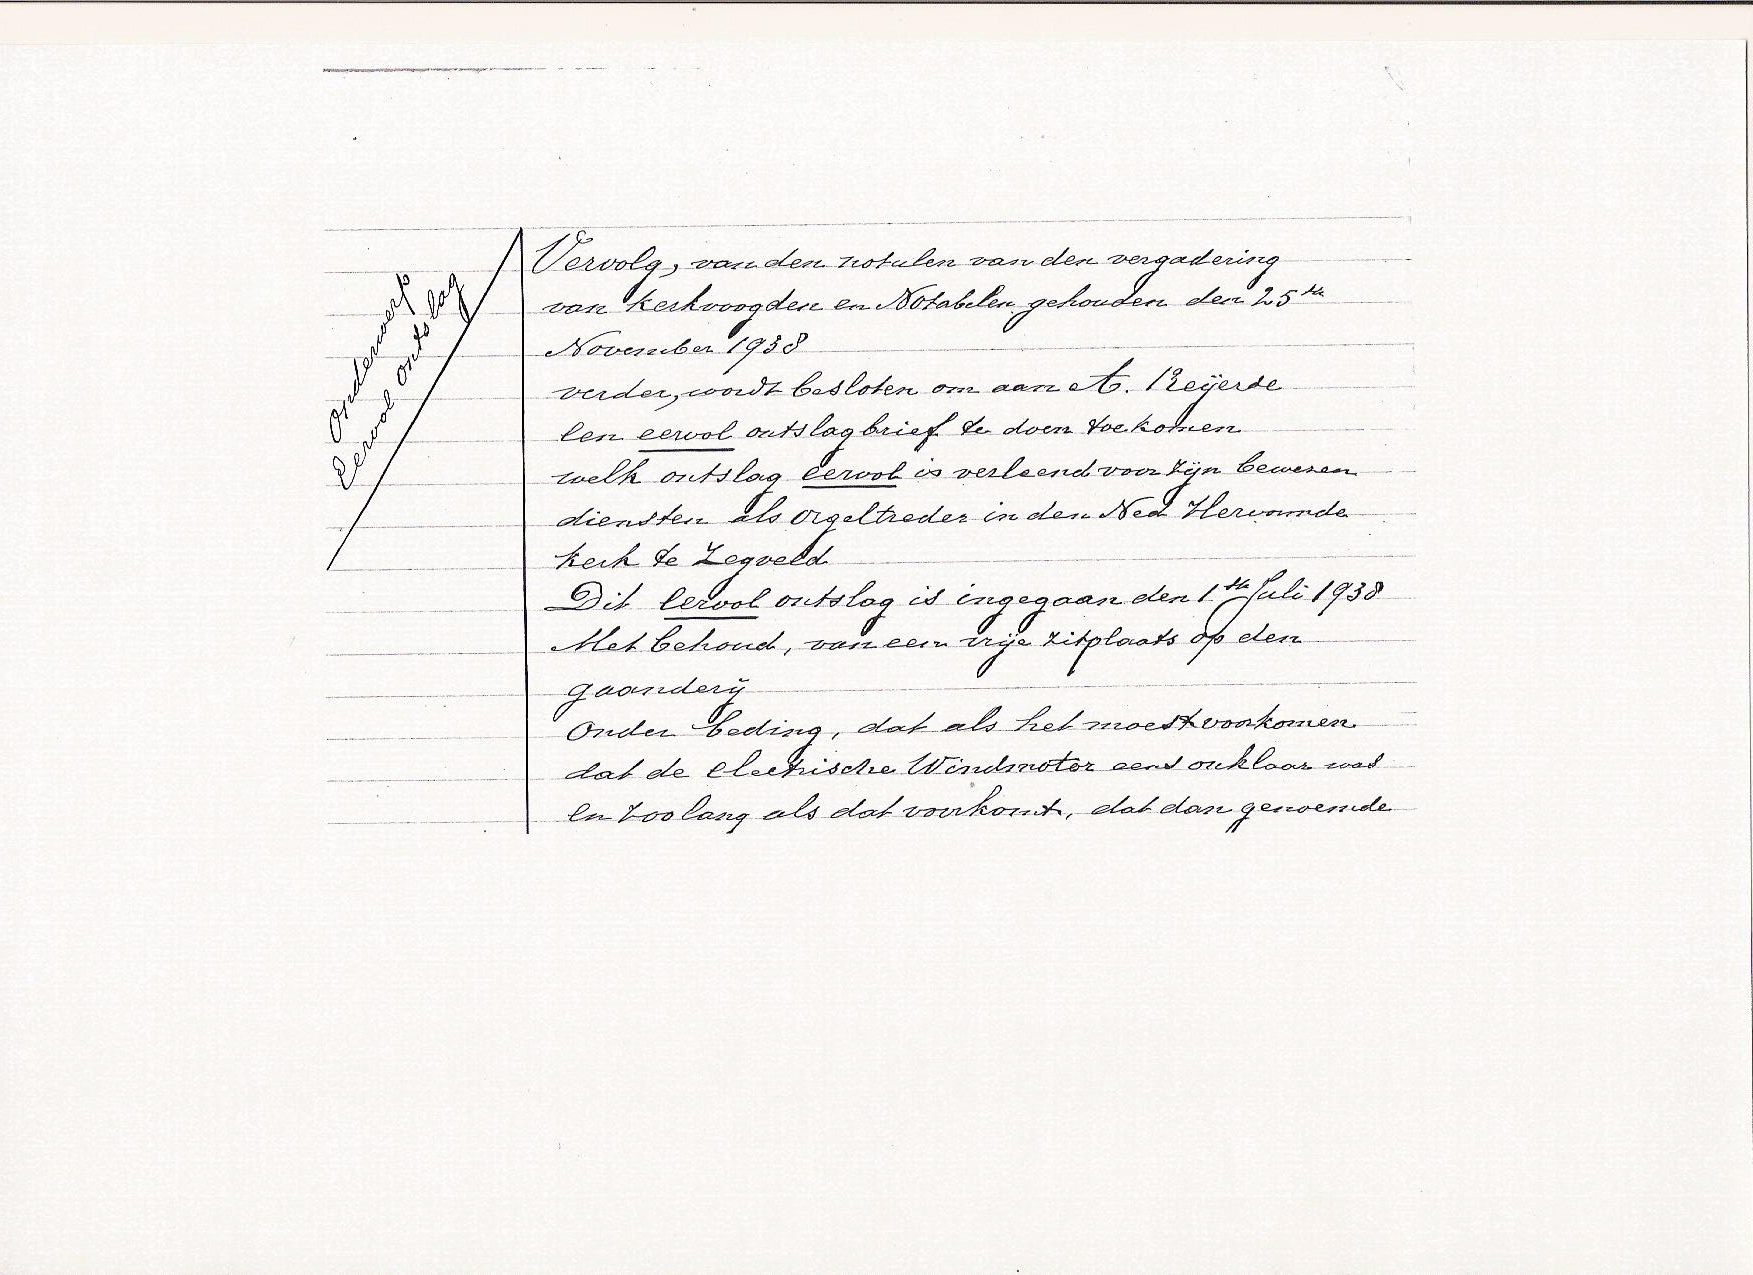 Onderwerp
Eervol ontslag
Vervolg, van den notulen van den vergadering
van kerkvoogden en Notabelen gehouden den 25ste
November 1938
verder, wordt besloten om aan A. Reijerse
een eervol ontslagbrief te doen toekomen
welk ontslag eervol is verleend voor zijn bewezen
diensten als orgeltreder in den Ned Hervormde
kerk te Zegveld
Dit eervol ontslag is ingegaan den 1ste Juli 1938
Met behoud, van een vrije zitplaats op den
gaanderij
Onder beding, dat als het moest voorkomen
dat de electrische Windmotor eens onklaar was
en zoolang als dat voorkomt, dat dan genoemde